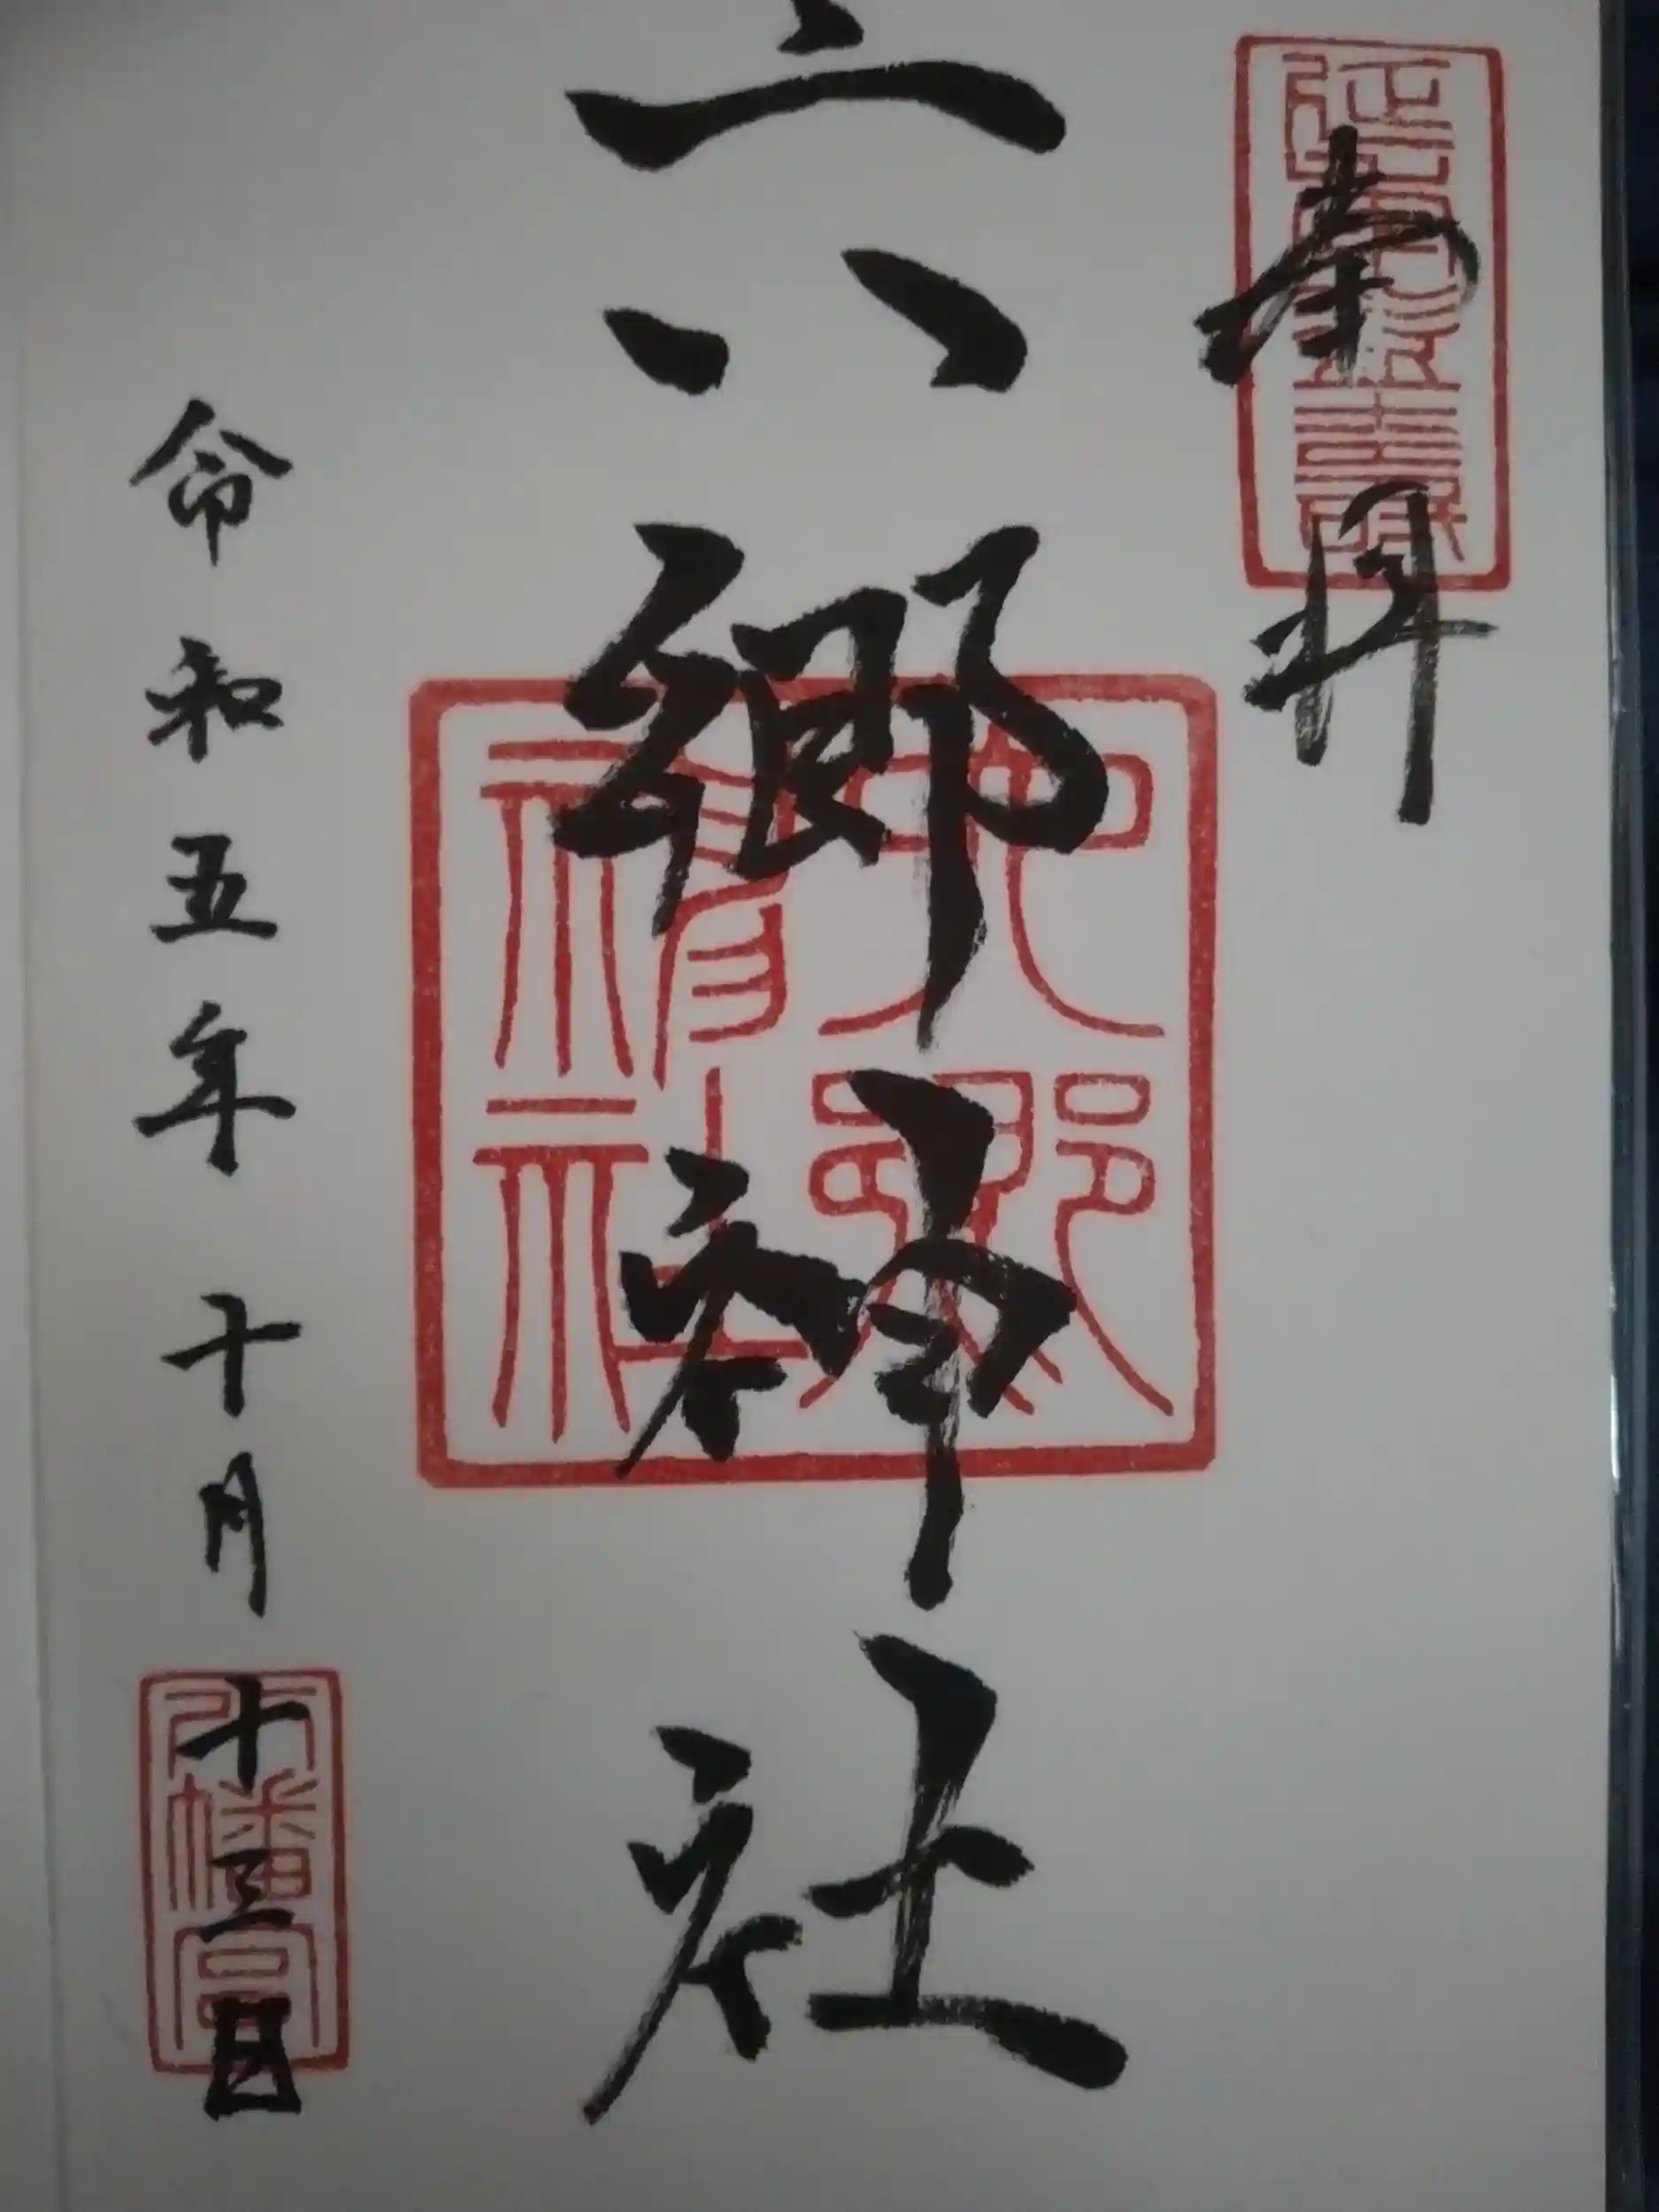 奉拝
六郷神社
令和五年十月十三日
六郷神社
八幡宮